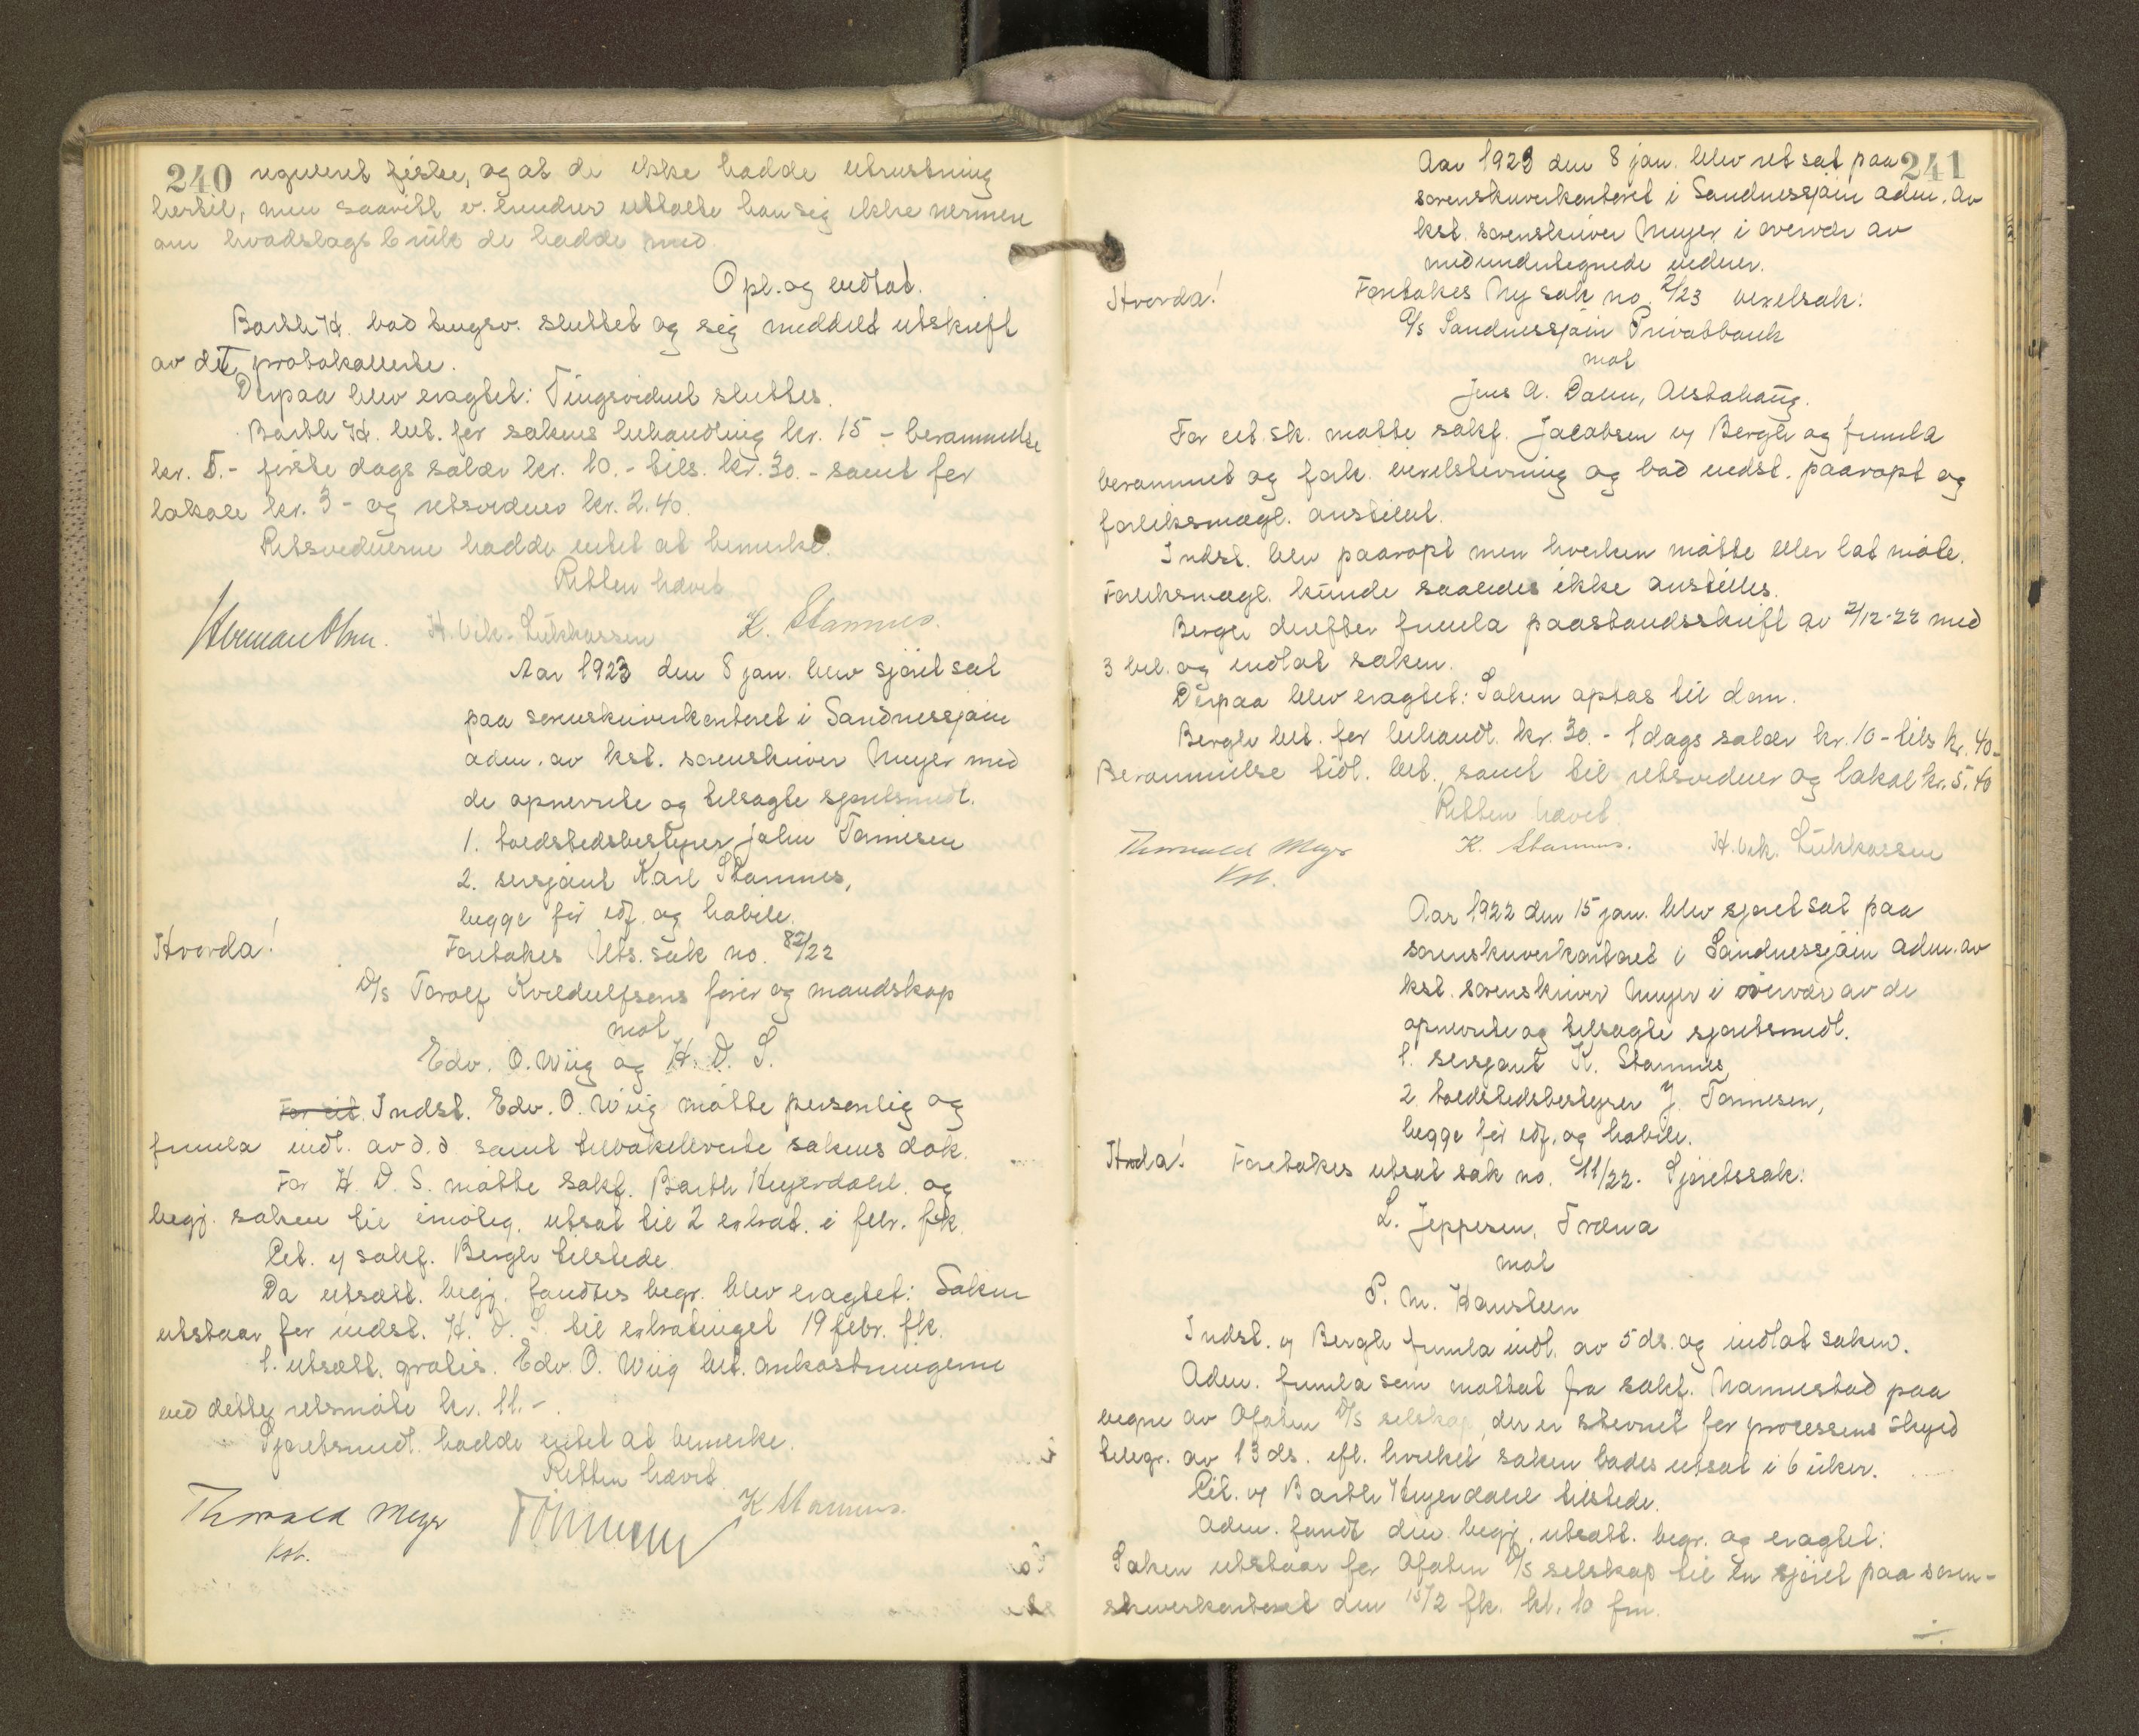 240 regulert fiske, og at de ikke hadde utrustning
hertil, men saavitt v. husker uttalte han sig ikke nermere
om hvadslags bruk de hadde med.
Opl. og vedtat.
Barth H. bad tingsv. sluttet og sig meddelt utskrift
av det protokollerte.
Derpaa blev eragtet: Tingsvidnet sluttes.
Barth H. bet. for sakens behandling kr. 15 - berammelse
kr. 5.- første dags salær kr. 10.- tils. kr. 30.- samt for
lokale kr. 3 - og retsvidner kr. 2.40.
Retsvidnerne hadde intet at bemerke.
Retten hævet
Herman Olsen. H. Vik-Lukkassen K. Stamnes.
Aar 1923 den 8 jan. blev sjøret sat
paa sorenskriverkontoret i Sandnessjøen
adm. av kst. sorenskriver Meyer med
de opnevnte og tilsagte sjøretsmedl.
1. toldstedsbestyrer John Tønnesen
2. sersjant Karl Stamnes,
begge før edf. og habile.
Hvorda! Foretokes Uts. sak no. 82/22
D/s Torolf Kveldulfsøns fører og mandskap
mot
Edv. O. Wiig og H. D. S.
For cit. Indst. Edv. O. Wiig møtte personlig og
fremla indl. av d. d samt tilbakeleverte sakens dok.
For H. D. S. møtte sakf. Barth Heyerdahl og
begj. saken til imøteg. utsat til 2 extrat. i febr. fk.
Cit. v/ sakf. Bergh tilstede.
Da utsætt. begj. fandtes begr. blev eragtet: Saken
utstaar for indst. H. D. S. til extratinget 19 febr. fk.
1. utsætt. gratis. Edv. O. Wiig bet. omkostningerne
ved dette retsmøte kr. 11.-.
Sjøretsmedl. hadde intet at bemerke.
Retten hævet
Thorvald Meyer Tønnesen K Stamnes.
Kst.
Aar 1923 den 8 jan. blev ret sat paa 241
sorenskriverkontoret i Sandnessjøen adm. av
kst. sorenskriver Meyer i overvær av
medundertegnede vidner.
Hvorda! Foretokes Ny sak no. 2/23 vexelsak:
A/s Sandnessjøen Privatbank
mot
Jens A. Dalen, Alstahaug.
For cit. sk. møtte sakf. Jacobsen v/ Bergh og fremla
berammet og fork. vexelstevning og bad indst. paaropt og
forliksmegl. anstillet.
Indst. blev paaropt men hverken møtte eller lot møte.
Forliksmegl. kunde saaledes ikke anstilles.
Bergh derefter fremla paastandsskrift av 2/12-22 med
3 bil. og indlot saken.
Derpaa blev eragtet: Saken optas til dom.
Bergh bet. for behandl. kr. 30.- 1 dags salær kr. 10 - tils kr. 40.-
Berammelse tidl. bet., samt til retsvidner og lokal kr. 5.40
Retten hævet.
Thorvald Meyer K. Stamnes. H. Vik. Lukkassen
Kst.
Aar 1922 den 15 jan. blev sjøret sat paa
sorenskriverkontoret i Sandnessjøen adm. av
kst. sorenskriver Meyer i overvær av de
opnevnte og tilsagte sjøretsmedl.
1. sersjant K. Stamnes,
2. toldstedsbestyrer J. Tønnesen,
begge før edf. og habile.
Hvorda! Foretokes utsat sak no. 11/22. Sjøretssak:
L. Jeppesen, Træna
mot
P. M. Hansteen
Indst. v/ Bergh fremla indl. av 5 ds. og indlot saken.
Adm. fremla som mottat fra sakf. Mannestad paa
vegne av Ofoten D/s selskap, der er stevnet for processens skyld
telegr. av 13 ds. efl. hvilket saken bades utsat i 6 uker.
Cit. v/ Barth Heyerdahl tilstede.
Adm. fandt den begj. utsætt. begr. og eragtet:
Saken utstaar for Ofoten D/s selskap til en sjøret paa soren-
skriverkontoret den 15/2 fk. kl. 10 fm.